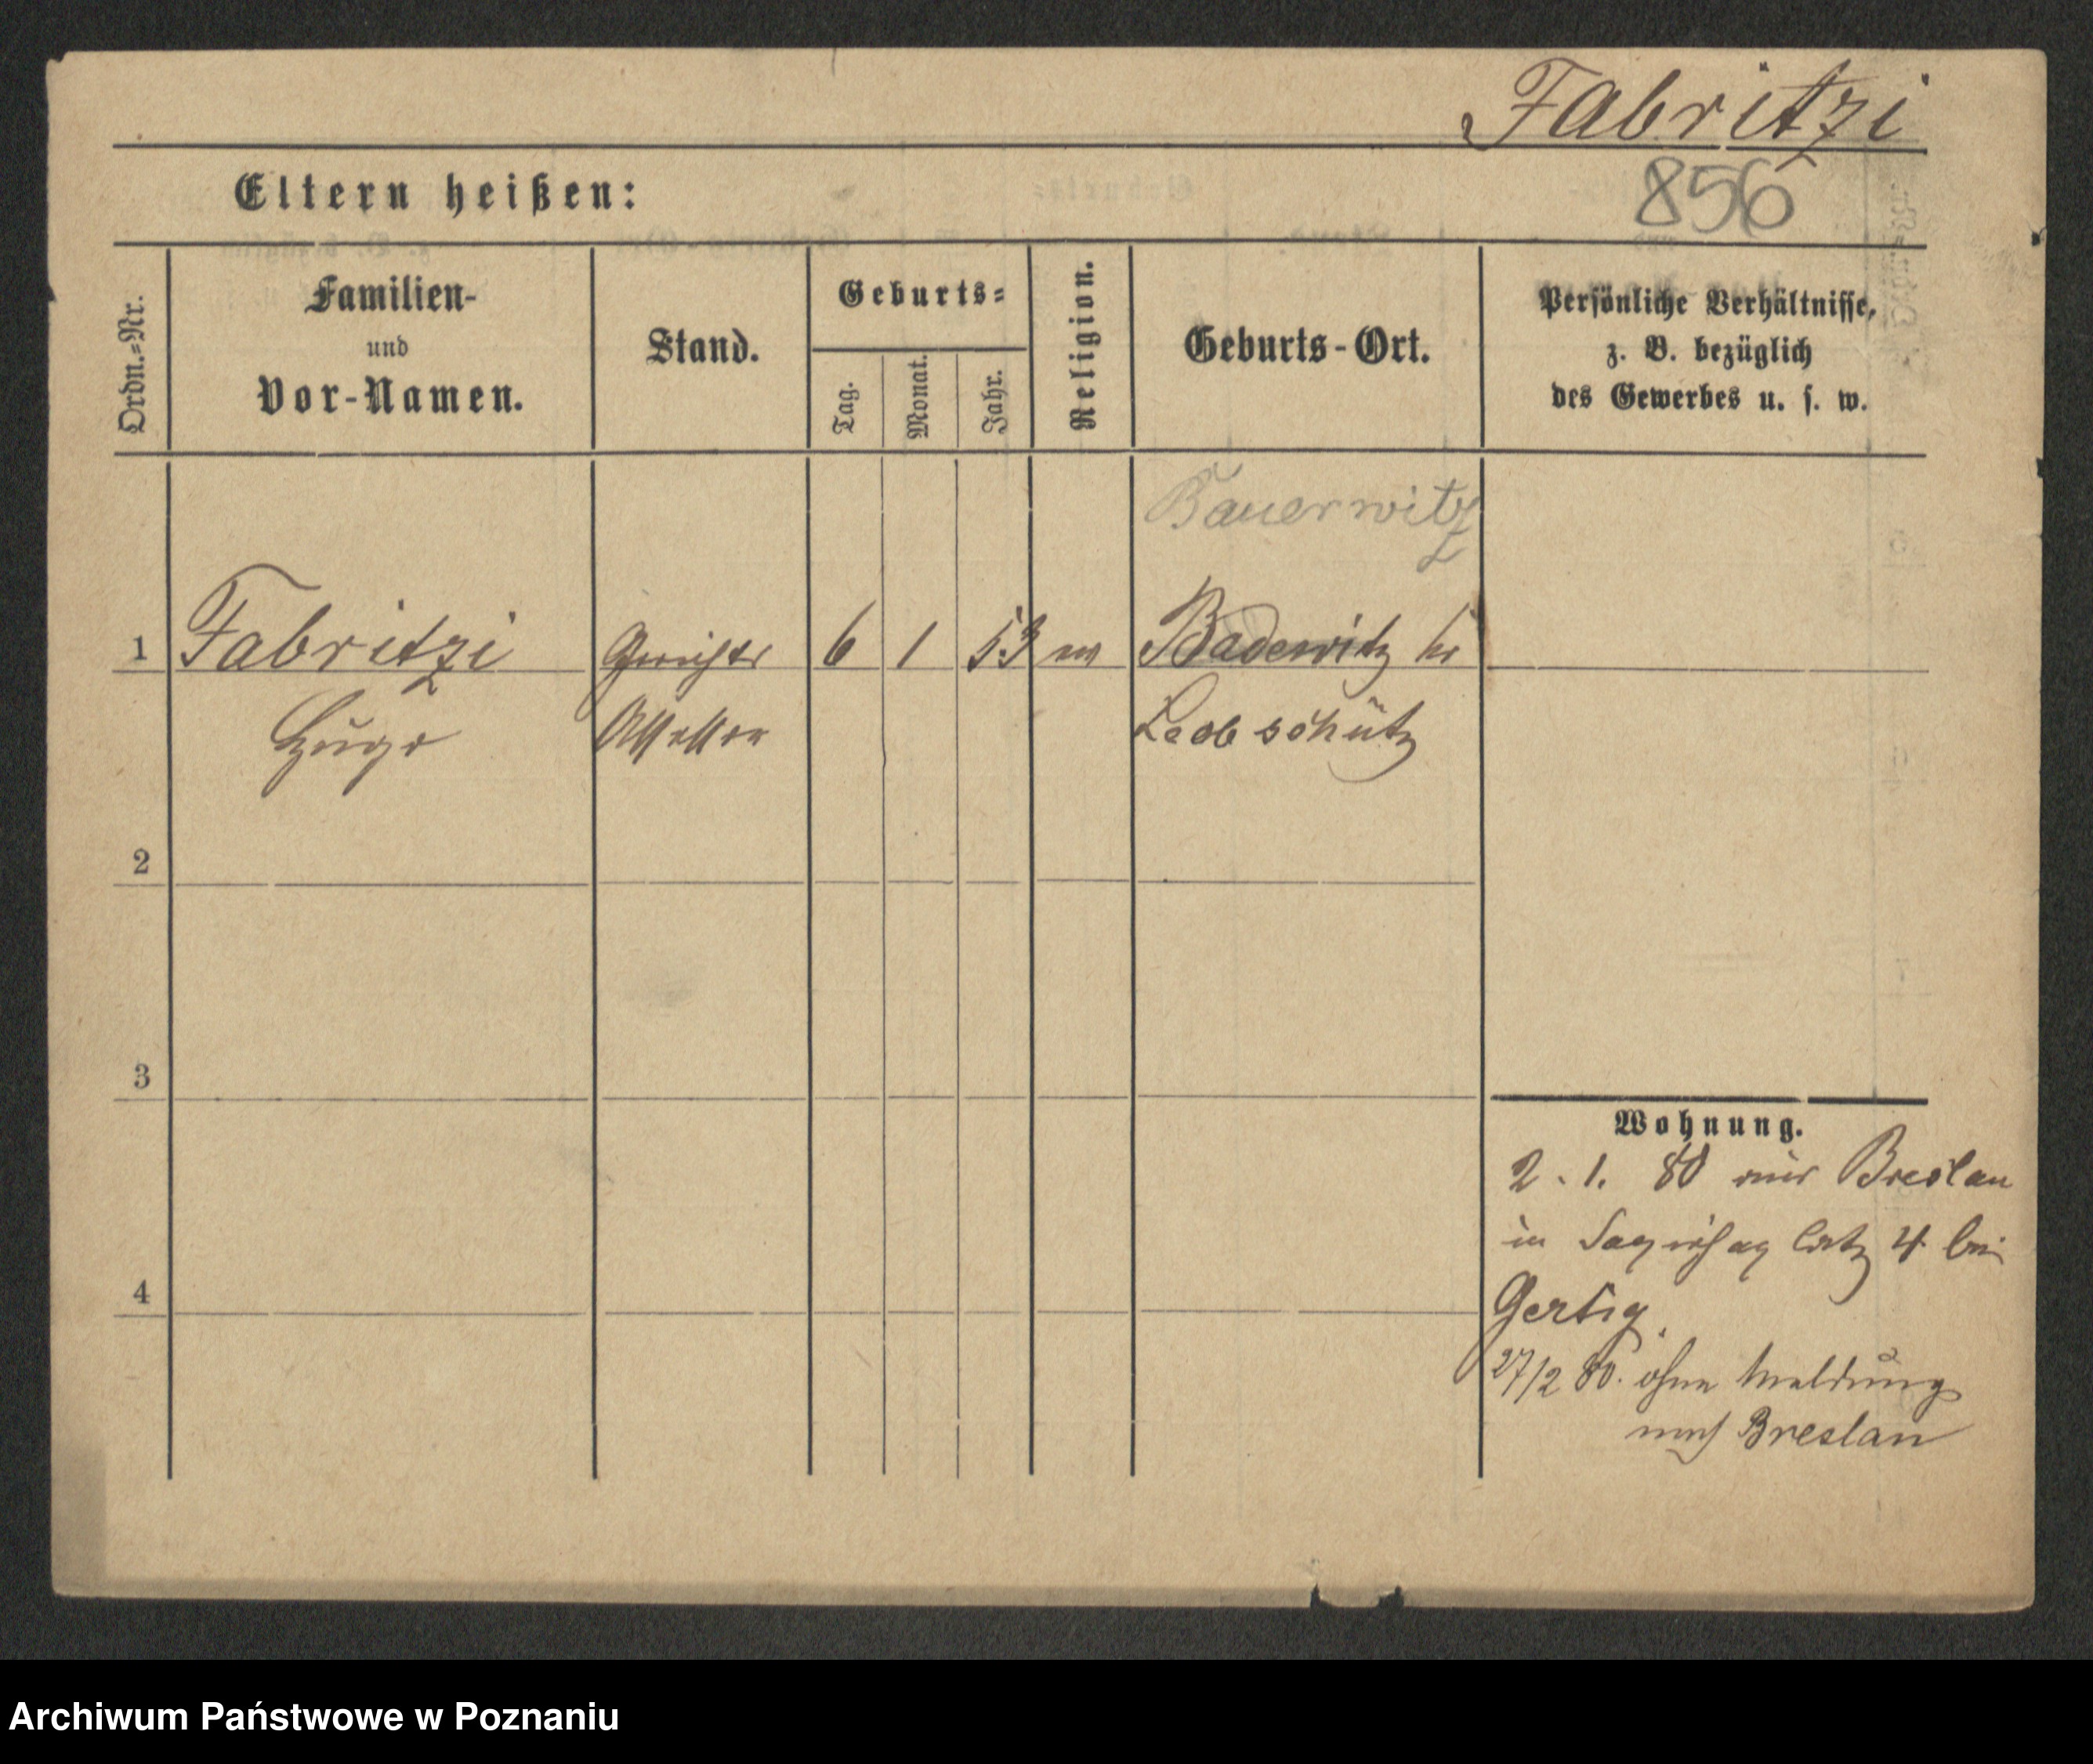 Fabritzi
856
Eltern heißen:
Ordn.-Nr.
Familien-
und
Vor-Namen.
Stand.
Geburts-
Tag.
Monat.
Jahr.
Religion.
Geburts-Ort.
Persönliche Verhältnisse,
z. B. bezüglich
des Gewerbes u. s. w.
Bauerwitz
1 Fabritzi Gerichts 6 1 53 Badewitz Kr
Hugo Assessor Leobschütz
2
3
4
Wohnung.
2. 1. 80 aus Breslau
in 4 bei
Gertig.
27/2 80. ohne Meldung
nach Breslau
Archiwum Państwowe w Poznaniu